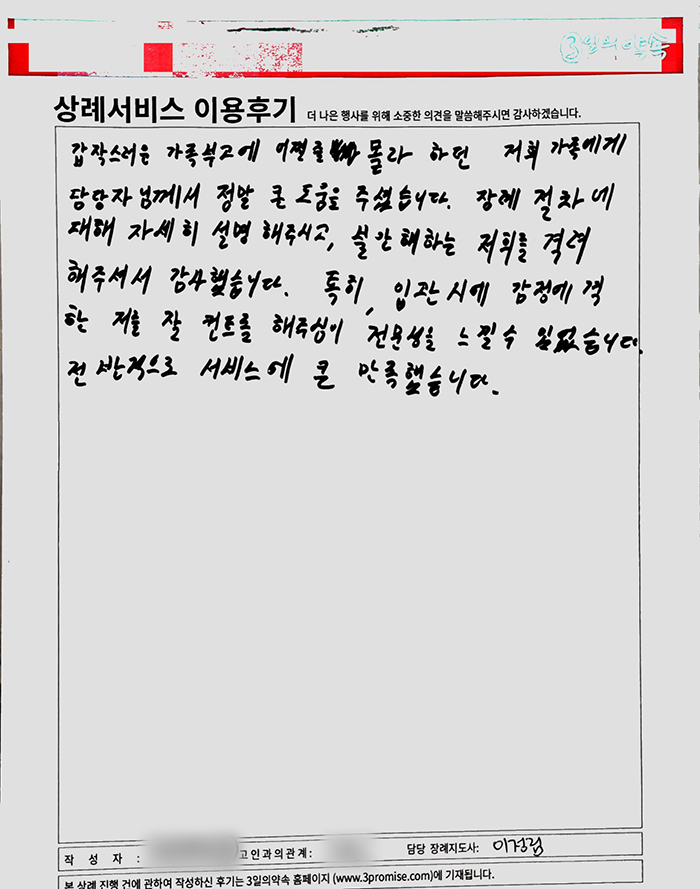 3일의약속
상례서비스 이용후기 더 나은 행사를 위해 소중한 의견을 말씀해주시면 감사하겠습니다.
갑작스러운 가족부고에 어쩔줄 몰라 하던 저희 가족에게
담당자님께서 정말 큰 도움을 주셨습니다. 장례 절차에
대해 자세히 설명 해주시고, 불안해하는 저희를 격려
해주셔서 감사했습니다. 특히, 입관시에 감정에 격
한 저를 잘 컨트롤 해주심이 전문성을 느낄수 있었습니다.
전반적으로 서비스에 큰 만족했습니다.
작 성 자 : 고인과의관계: 담당 장례지도사:
본 상례 진행 건에 관하여 작성하신 후기는 3일의약속 홈페이지 (www.3promise.com)에 기재됩니다.